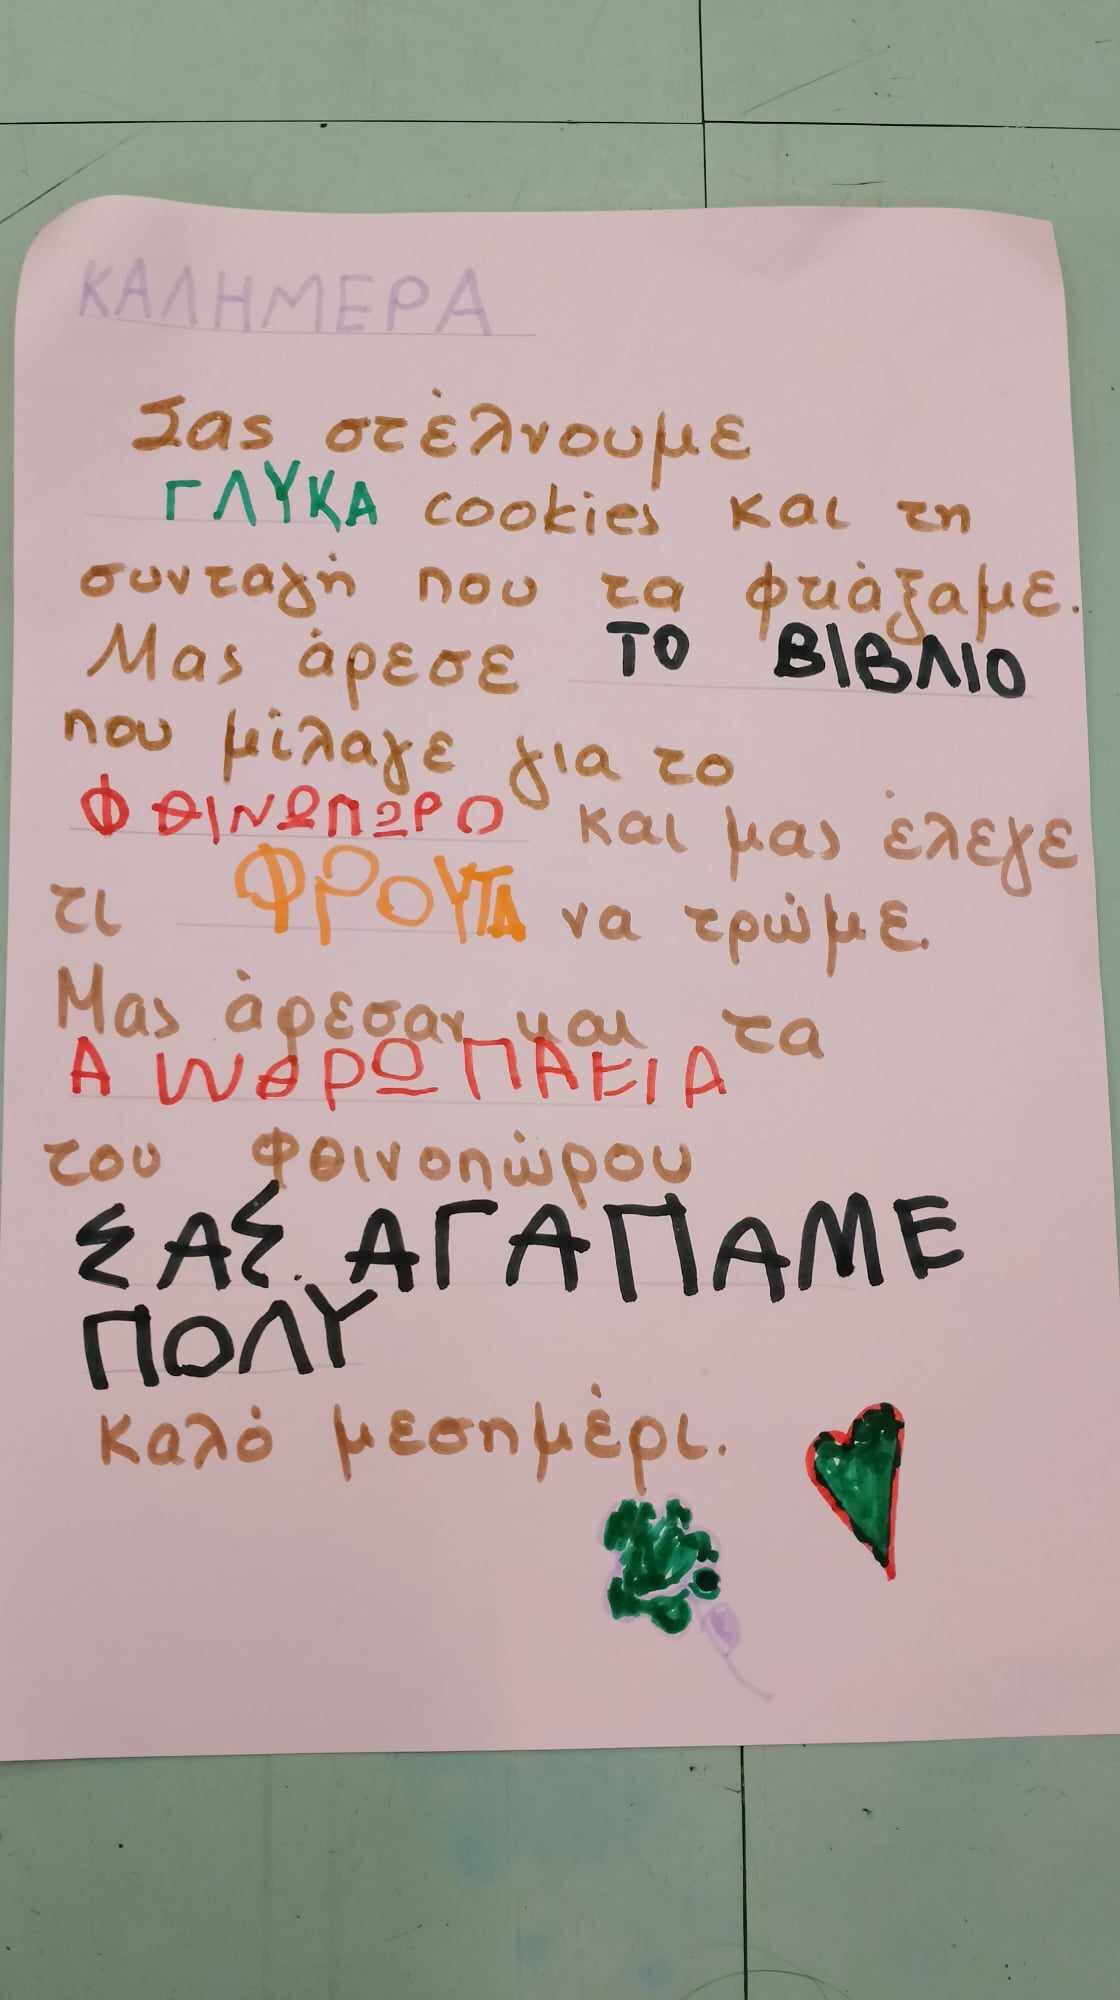 ΚΑΛΗΜΕΡΑ
Σας στέλνουμε
ΓΛΥΚΑ cookies και τη
συνταγή που τα φτιάξαμε.
Μας άρεσε ΤΟ ΒΙΒΛΙΟ
που μίλαγε για το
ΦΘΙΝΩΠΩΡΟ και μας έλεγε
τι ΦΡΟΥΤΑ να τρώμε.
Μας άρεσαν και τα
ΑΝΘΡΩΠΑΚΙΑ
του φθινοπώρου
ΣΑΣ ΑΓΑΠΑΜΕ
ΠΟΛΥ
Καλό μεσημέρι.